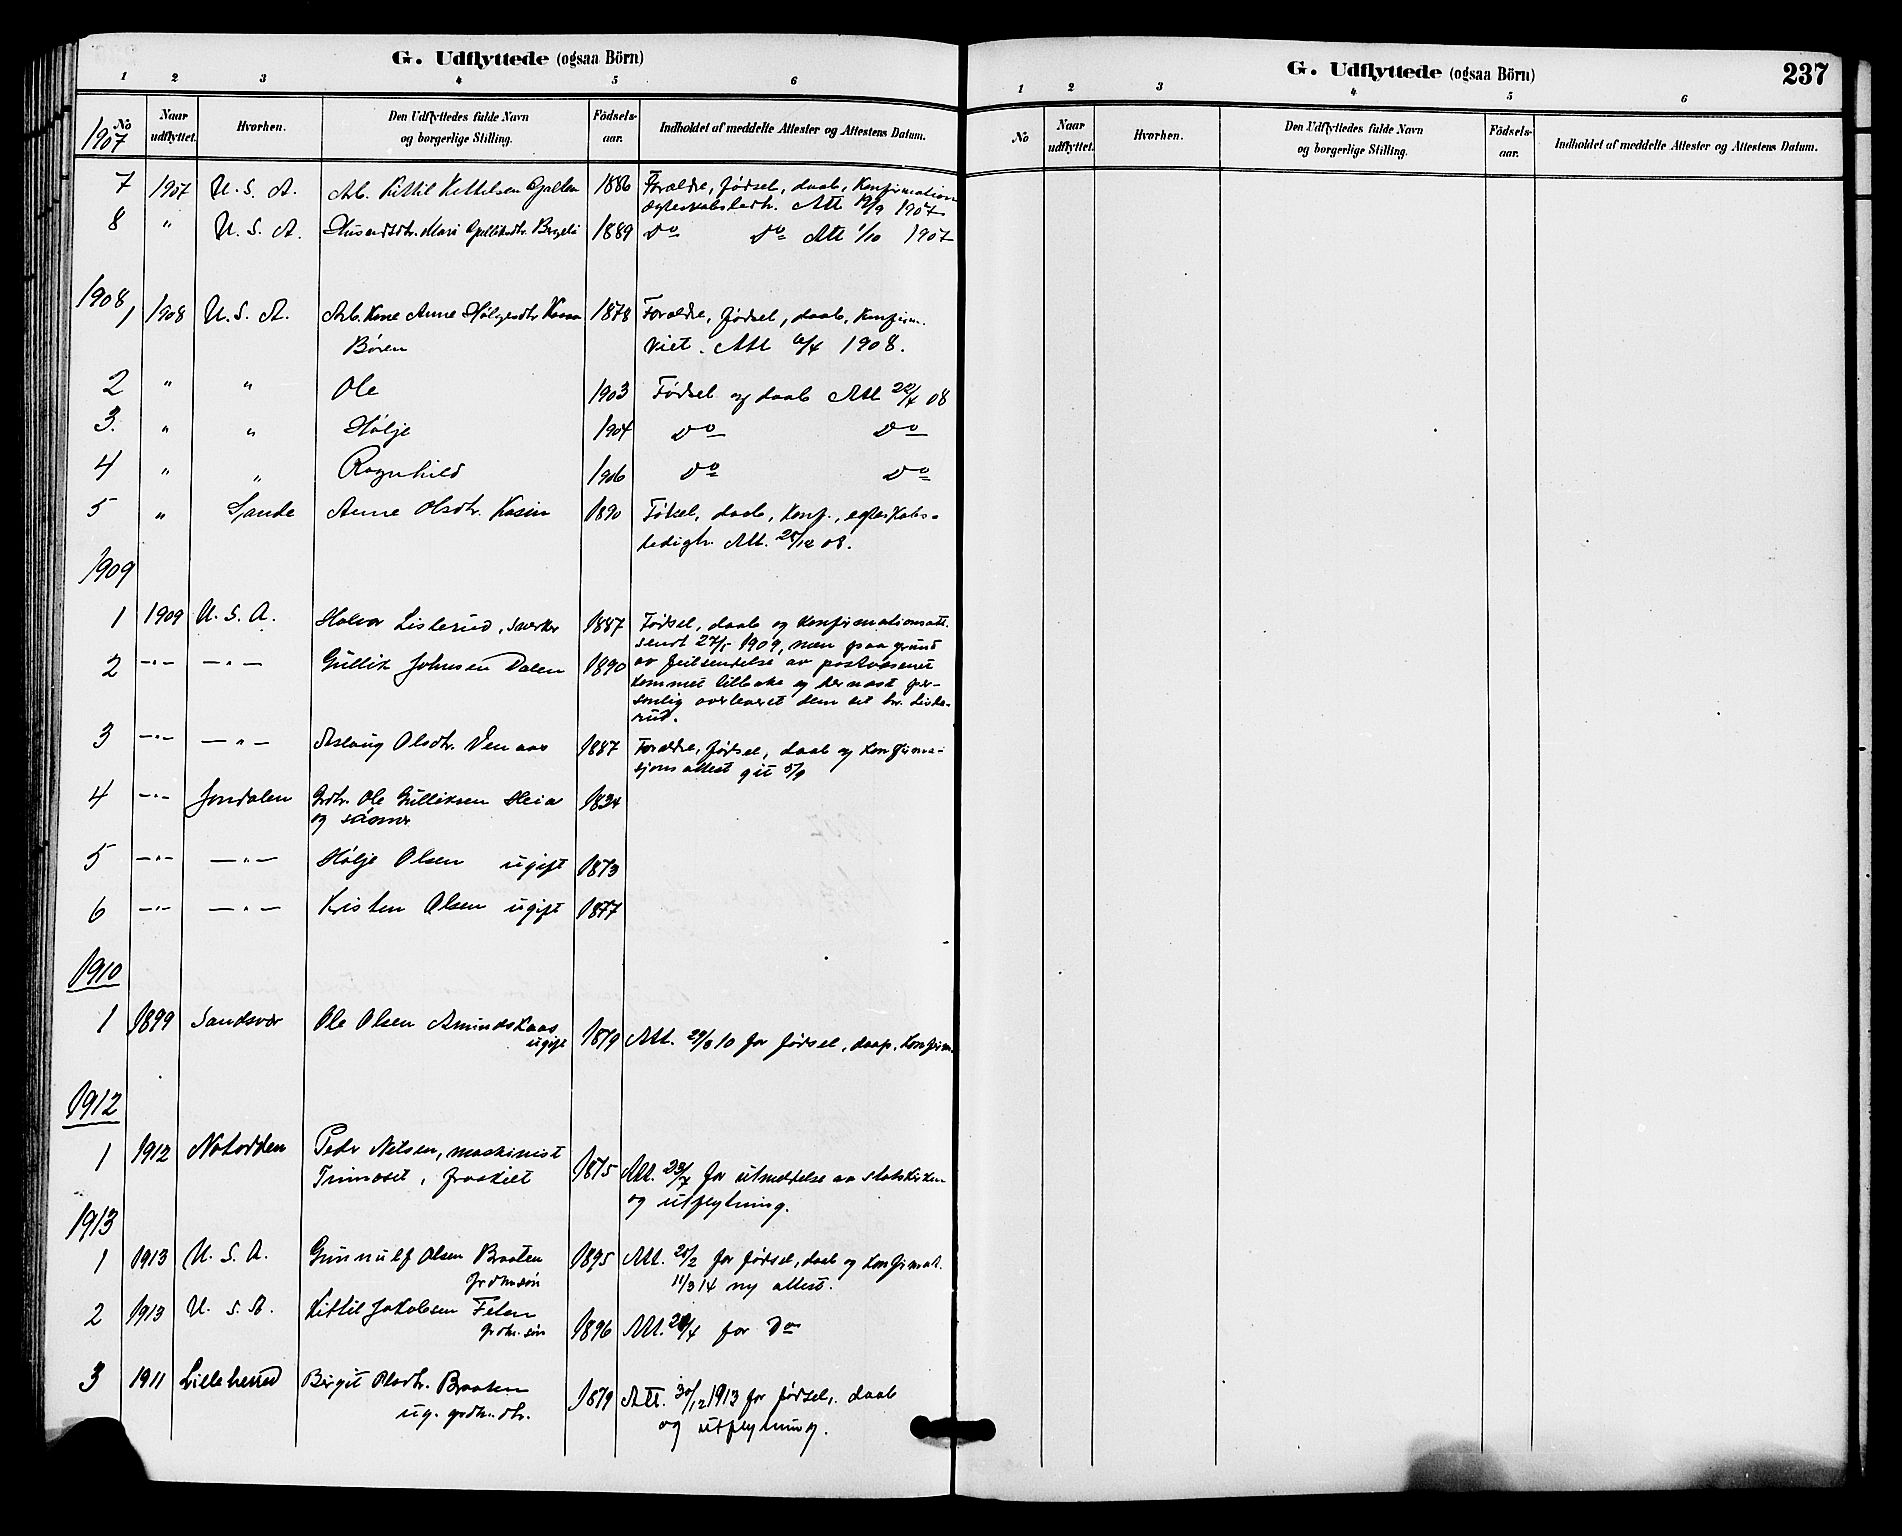 G. Udflyttede (ogsaa Börn)
1 2 3 4 5 6
No Naar udflyttet. Hvorhen. Den Udflyttedes fulde Navn og borgerlige Stilling. Fødsels-aar. Indholdet af meddelte Attester og Attestens Datum.
1907
7 1907 U. S. A. Arb. Kittil Kittelsen 1886 Forældre, fødsel, daab, Konfirmation
Att 12/9 1907
8 " U. S. A. Mari Gulliksdr. 1889 Do Do Att 1/10 1907
1908
1 1908 U. S. A. Arb. Kone Anne Høljesdtr 1878 Forældre, fødsel, daab, Konfirm.
Børn viet. Att 1908.
2 " " Ole 1903 Fødsel og daab Att 22/4 08
3. " " Hølje 1904 Do Do
4 " " Ragnhild 1906 Do Do
5 " Sande Anne Olsdtr. Kasin 1890 daab, Konf., egteskabs-
ledigh. Att. 28/12 08.
1909
1 1909 U. S. A. Halvor Listerud, 1887 Fødsel, daab og Konfirmationsatt.
sendt 27/5 1909, men paa grund
2 -"- -"- Gullik Johnsen Dalen 1890 av feilsendelse av postvæsenet
kommet tilbake og dernæst per-
sonlig overleveret dem ved hr. Liste-
rud.
3 -"- -"- Aslaug Olsdtr. Venaas 1887 Forældre, fødsel, daab og konfirma-
sjonsattest git 5/9
4 -"- Jondalen Grdbr. Ole Gulliksen Heia 1834
og sønner
5 -"- -"- Hølje Olsen ugift 1873
6 -"- -"- Kristen Olsen ugift 1877
1910
1 1899 Sandsvær Ole Olsen Amundskaas
ugift 1879 Att. 29/3 10 for fødsel, daap, konfirm.
1912
1 1912 Notodden Peder Nilsen, maskinist
fraskilt 1875 Att. 23/7 for utmeldelse av statskirken
og utflytning.
1913
1 1913 U. S. A. Gunnulf Olsen Braaten 1895 Att. 20/2 for fødsel, daab og konfirmat.
grdmsøn 11/3 14 ny attest.
2 1913 U. S. A. Kittil Jakobsen Feten
grdm. søn 1896 Att. 28/4 for Do
3 1911 Lilleherred Birgit Olsdtr. Braaten
ug. grdm. dtr. 1879 Att. 30/12 1913 for fødsel, daab
og utflytning.
G. Udflyttede (ogsaa Börn) 237
1 2 3 4 5 6
No Naar udflyttet. Hvorhen. Den Udflyttedes fulde Navn og borgerlige Stilling. Fødsels-aar. Indholdet af meddelte Attester og Attestens Datum.